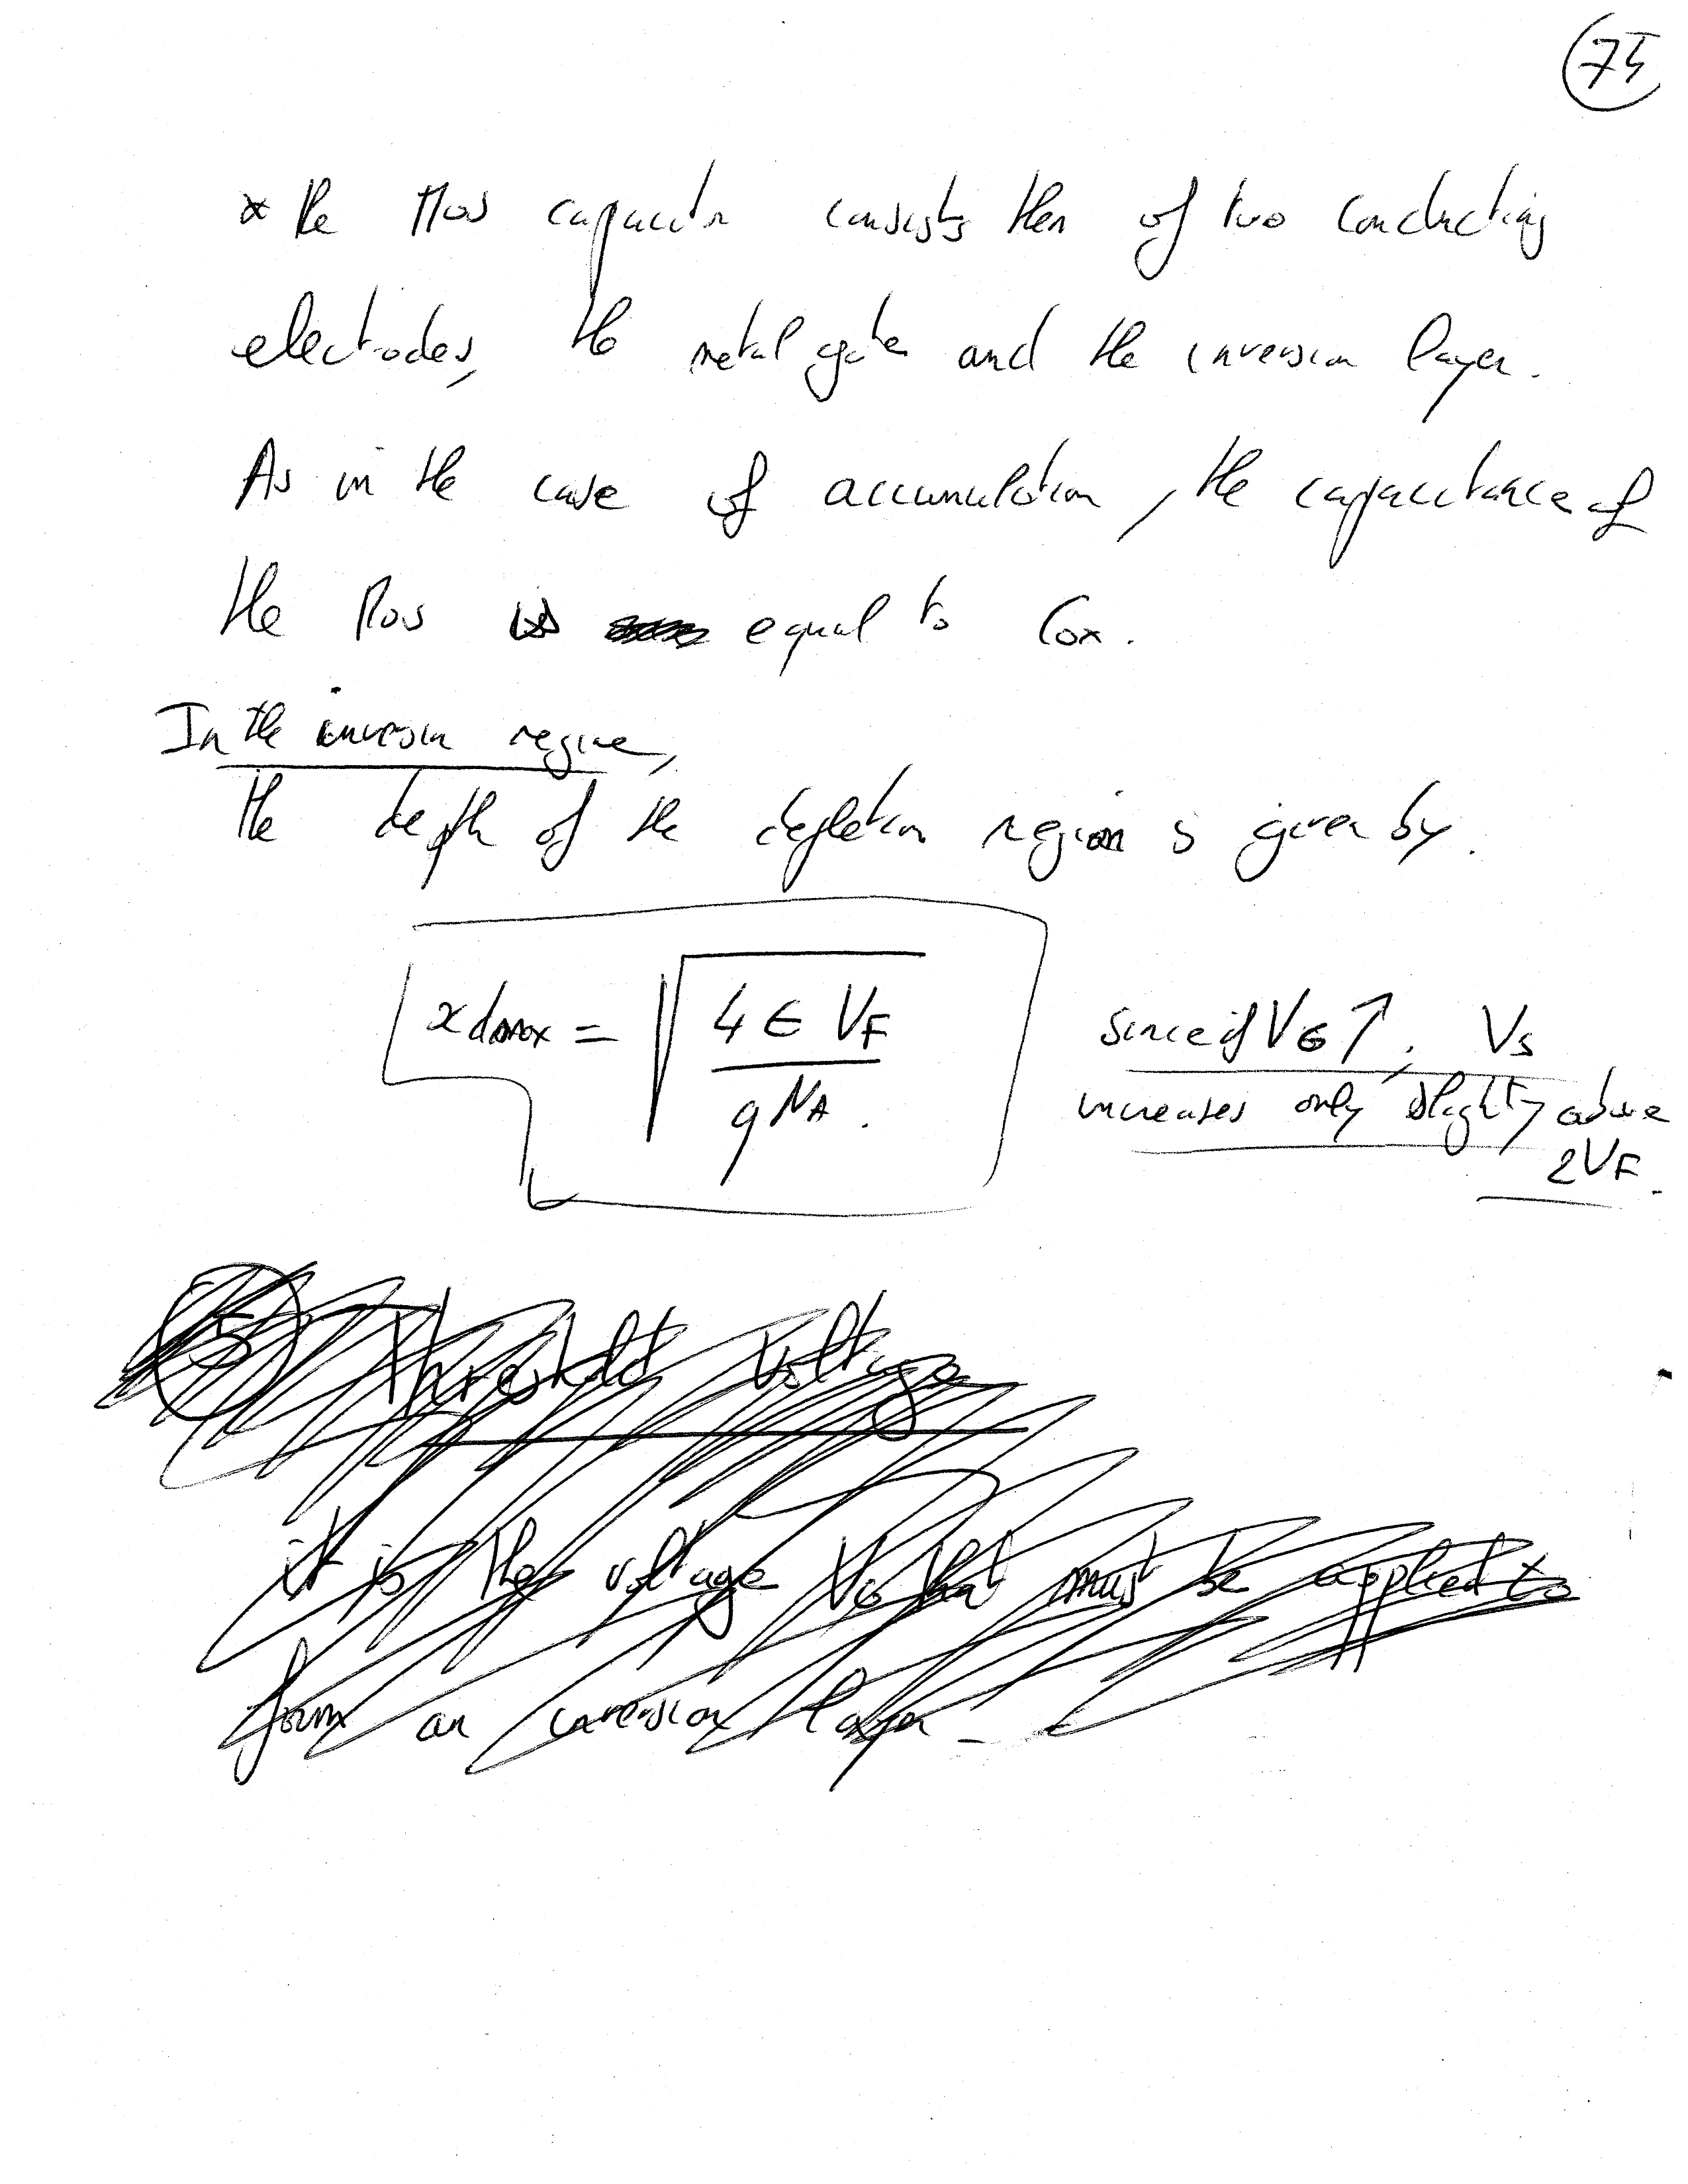 75
* the Mos capacitor consists then of two conducting
electrodes, the metal gate and the inversion layer.
As in the case of accumulation, the capacitance of
the Mos is equal to Cox.
In the inversion regime,
the depth of the depletion region is given by.
xdmax = √(4 ϵ VF / q NA) . since if VG ↑, VS
increases only slightly above
2VF.
5 threshold voltage
it is the voltage VG that must be applied to
form an inversion layer -